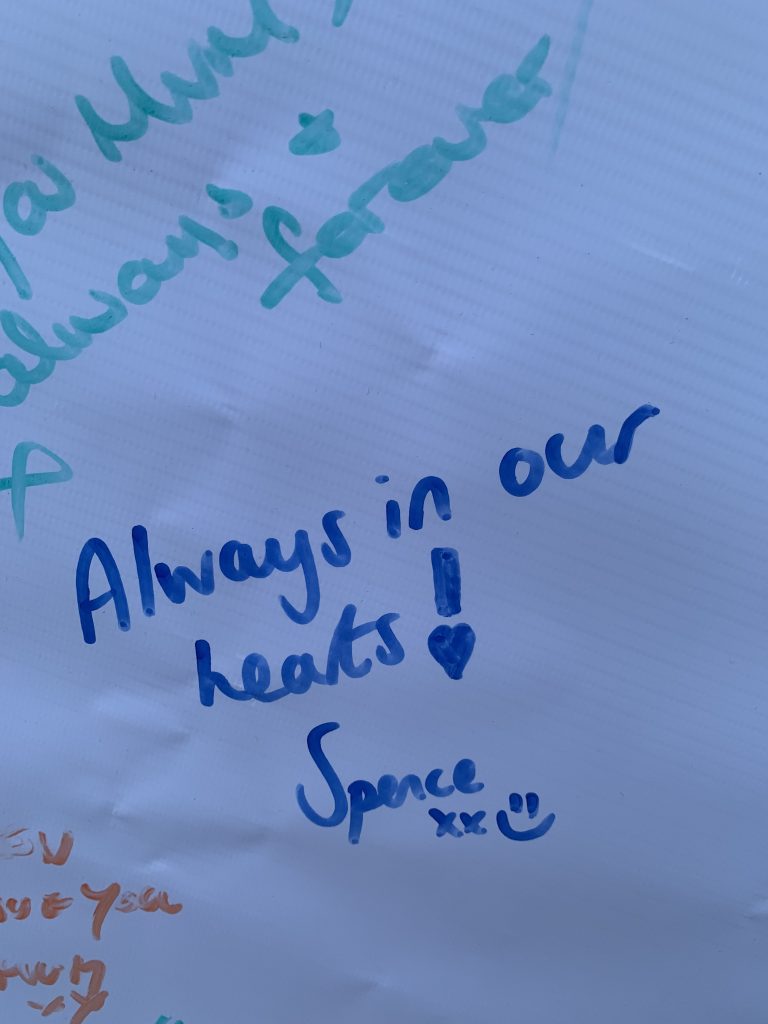 always &
forever
Always in our
hearts!
Spence
xx
You